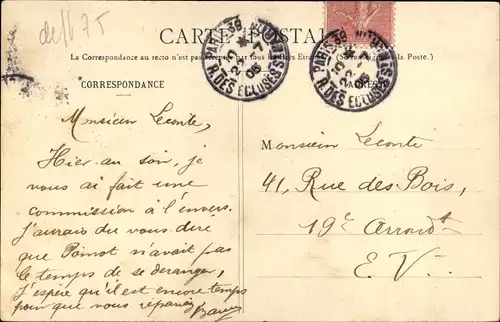 CARTE POSTALE
La Correspondance au recto n'est pas
de la Poste.)
CORRESPONDANCE
PARIS 38
R. DES ECLUSES ST
22 -7
05
PARIS 38
R. DES ECLUSES ST
22
05
Monsieur Leconte,
Hier au soir, je
vous ai fait une
commission à l'envers.
J'aurais du vous dire
que Poinot n'avait pas
le temps de se deranger,
J'espère qu'il est encore temps
pour que vous répariez
Monsieur Leconte
41, Rue des Bois,
19e Arrondt
E. V.